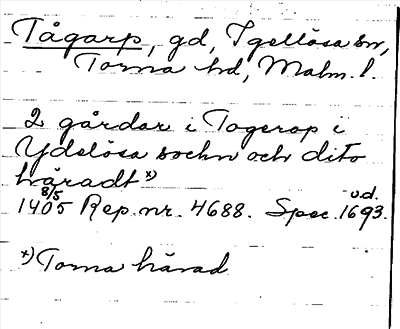 Tågarp, gd, Igellösa sn,
Torna hd, Malm. l.
2 gårdar i Togerop i
Ydelösa sochn och dito
häradt x)
1405 8/5 Rep. nr. 4688. Spec. 1693. u.d.
x) Torna härad